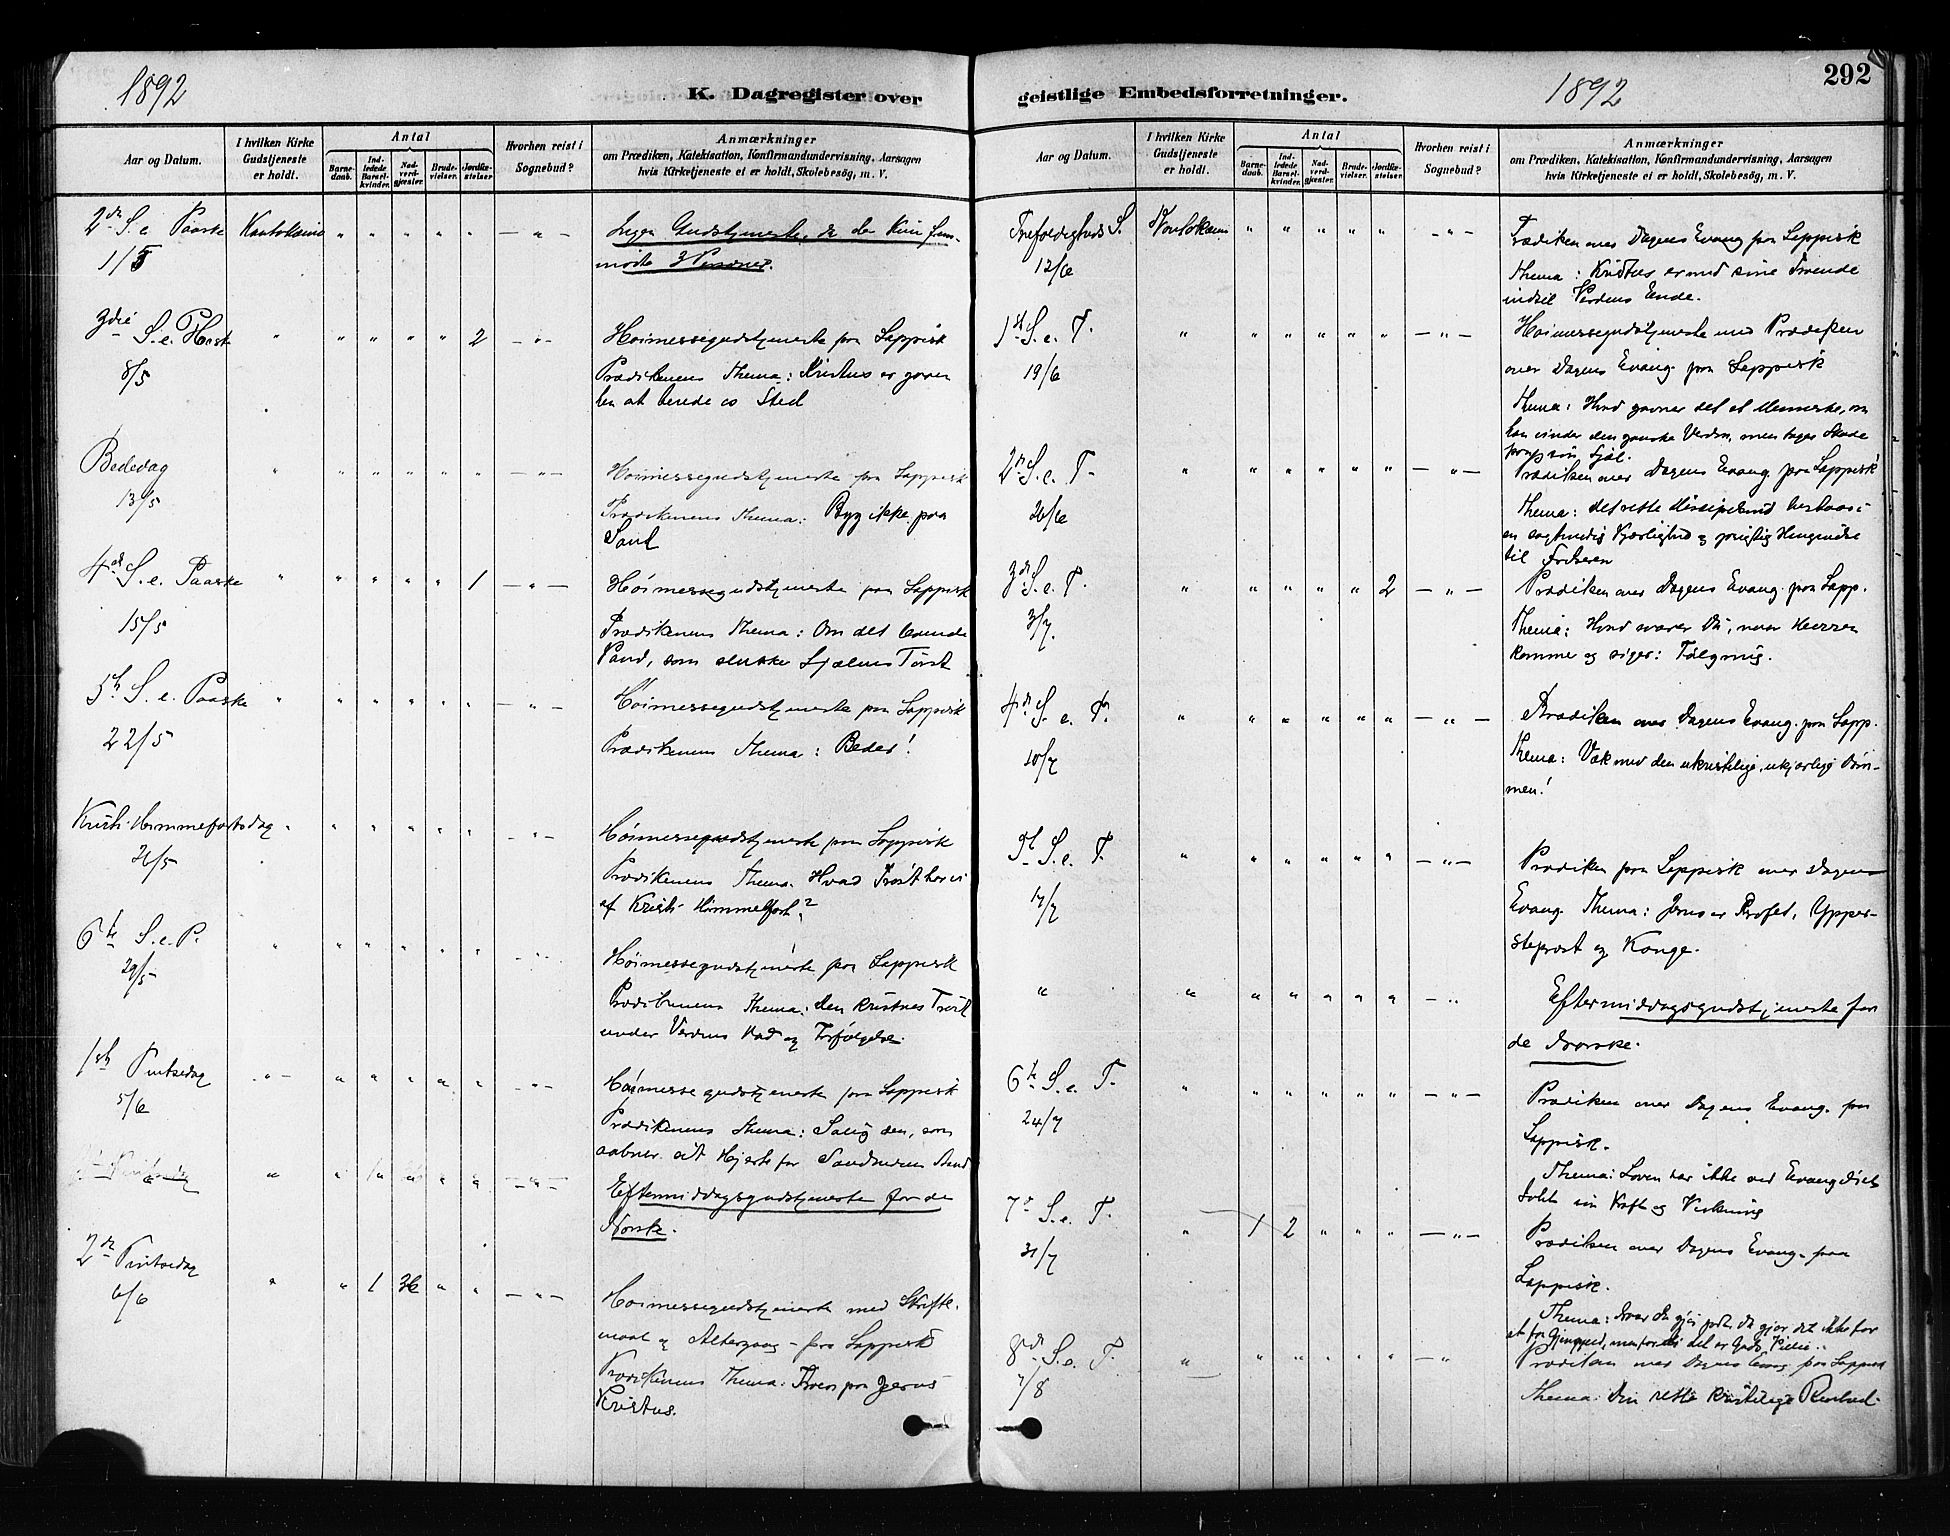 1892
K. Dagregister over
Aar og Datum.
I hvilken Kirke Gudstjeneste er holdt.
Antal
Barnedaab.
Indledede Barselkvinder.
Nadverdgjæster.
Brudevielser.
Jordfæstelser.
Hvorhen reist i Sognebud?
Anmærkninger
om Prædiken, Katekisation, Konfirmandundervisning, Aarsagen
hvis Kirketjeneste ei er holdt, Skolebesøg, m. V.
2den S. e Paaske Kautokeino " " " " " — " — Ingen Gudstjeneste, da der kun frem-
1/5 mødte 3 Personer.
3die S. e. Paaske " " " " " 2 — " — Høimessegudstjeneste paa Lappisk
8/5 Prædikenens Thema: Kristus er gaaen
hen at berede os Sted
Bededag " " " " " " — " — Høimessegudstjeneste paa Lappisk
13/5 Prædikenens Thema: Byg ikke paa
Sand
4de S. e. Paaske " " " " " 1 — " — Høimessegudstjeneste paa Lappisk
15/5 Prædikenens Thema: Om det levende
Vand, som slukke Sjælens Tørst
5te S. e. Paaske " " " " " " — " — Høimessegudstjeneste paa Lappisk
22/5 Prædikenens Thema: Beder!
Kristi Himmelfartsdag " " " " " " — " — Høimessegudstjeneste paa Lappisk
26/5 Prædikenens Thema. Hvad Trøst har vi
af Kristi Himmelfart?
6te S. e. P. " " " " " " — " — Høimessegudstjeneste paa Lappisk
29/5 Prædikenens Thema: den kristnes Trøst
under Verdens Had og Forfølgelse.
1ste Pintsedag — " — " " " " " — " — Høimessegudstjeneste paa Lappisk
5/6 Prædikenens Thema: Salig den, som
aabner sit Hjerte for Sandhedens Aand
" " " " — " — Eftermiddagsgudstjeneste for de
Norske.
2den Pintsedag " " 1 36 " " — " — Høimessegudstjeneste med Skrifte-
6/6 maal og Altergang — paa Lappisk
Prædikenens Thema: Troen paa Jesus
Kristus.
292
1892
geistlige Embedsforretninger.
Aar og Datum.
I hvilken Kirke Gudstjeneste er holdt.
Antal
Barnedaab.
Indledede Barselkvinder.
Nadverdgjæster.
Brudevielser.
Jordfæstelser.
Hvorhen reist i Sognebud?
Anmærkninger
om Prædiken, Katekisation, Konfirmandundervisning, Aarsagen
hvis Kirketjeneste ei er holdt, Skolebesøg, m. V.
Trefoldigheds S. Kautokeino " " " " " — " — Prædiken over Dagens Evang paa Lappisk
12/6 Thema: Kristus er med sine Troende
indtil Verdens Ende.
1ste S. e. T. " " " " " " — " — Høimessegudstjeneste med Prædiken
19/6 over Dagens Evang. paa Lappisk
Thema: Hvad gavner det et Menneske, om
han vinder den ganske Verden, men tager Skade
paa sin Sjæl.
2den S. e. T. " " " " " " — " — Prædiken over Dagens Evang. paa Lappisk
26/6 Thema: det rette bestaar i
en Kjærlighed og Hengivelse
til Frelseren
3die S. e. T. " " " " " 2 — " — Prædiken over Dagens Evang. paa Lapp.
3/7. Thema: Hvad svarer Du, naar Herren
kommer og siger: Følg mig.
4de S. e. T. " " " " " " — " — Prædiken over Dagens Evang. paa Lapp.
10/7 Thema: Væk med den ukristelige, ukjærlige Døm-
men!
5te S. e. T. " " " " " " — " — Prædiken paa Lappisk over Dagens
17/7 Evang. Thema: Jesus er Profet, Ypper-
stepræst og Konge.
" " " " " " " — " Eftermiddagsgudstjeneste for
de Norske.
6te S. e. T. " " " " " " — " — Prædiken over Dagens Evang. paa
24/7 Lappisk.
Thema: Loven har ikke ved Evangeliet
tabt sin Kraft og Virkning
7de S. e. T. " 1 2 " " " — " — Prædiken over Dagens Evang. paa
31/7 Lappisk.
Thema: hvad du gjør godt, da gjør det ikke for
at faa Gjengjæld, men fordi det er Guds Villie.
8de S. e. T. " " " " " " — " Prædiken over Dagens Evang paa Lappisk
7/8 Thema: Den rette kristelige